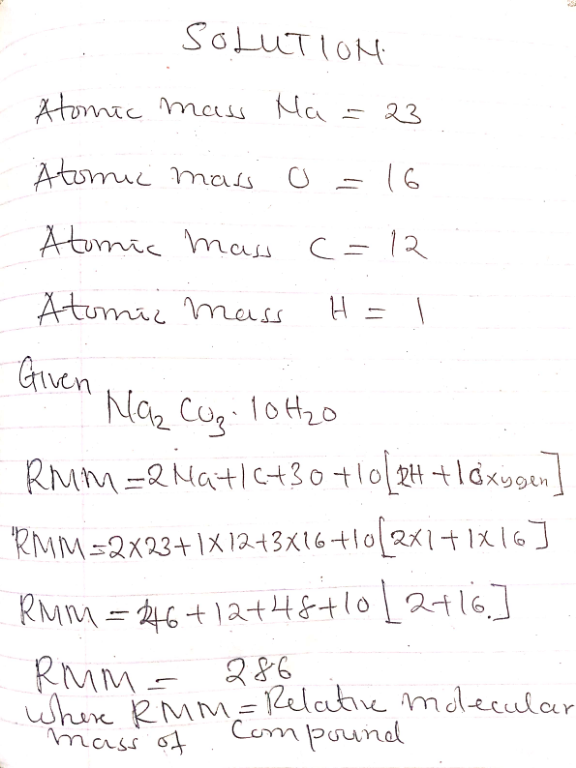 SOLUTION
Atomic mass Na = 23
Atomic mass O = 16
Atomic mass C = 12
Atomic mass H = 1
Given
Na₂CO₃·10H₂O
RMM = 2Na+1C+3O+10[2H+1Oxygen]
RMM = 2×23+1×12+3×16+10[2×1+1×16]
RMM = 46+12+48+10[2+16.]
RMM = 286
where RMM = Relative molecular
mass of compound